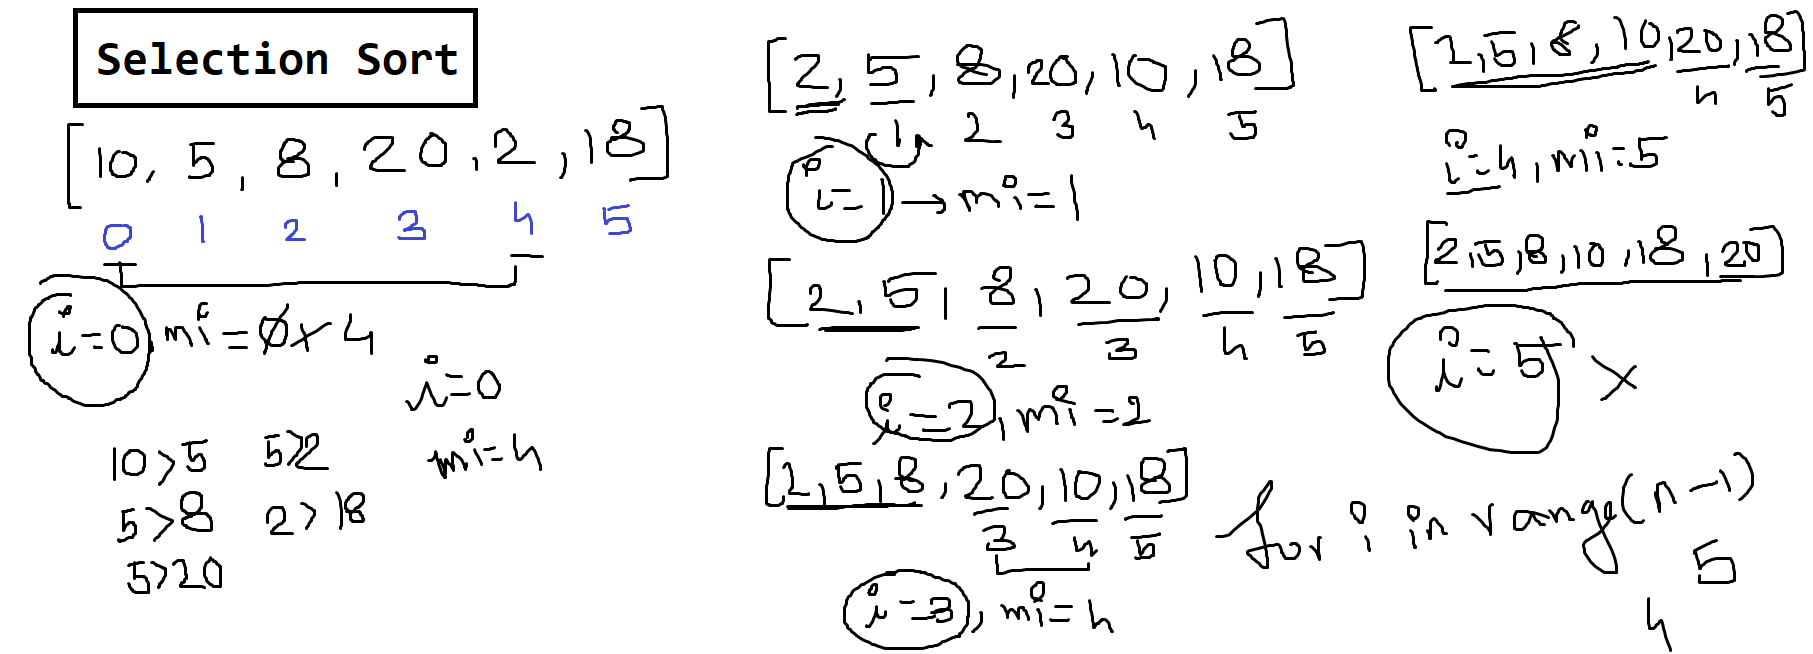 Selection Sort
[10, 5, 8, 20, 2, 18]
0 1 2 3 4 5
i=0, mi=0 x 4
i=0
mi=4
10>5 5>2
5>8 2>18
5>20
[2, 5, 8, 20, 10, 18]
1 2 3 4 5
i=1 → mi=1
[2, 5, 8, 20, 10, 18]
2 3 4 5
i=2, mi=2
[2, 5, 8, 20, 10, 18]
3 4 5
i=3, mi=4
[2, 5, 8, 10, 20, 18]
4 5
i=4, mi=5
[2, 5, 8, 10, 18, 20]
i=5 x
for i in range(n-1)
5
4